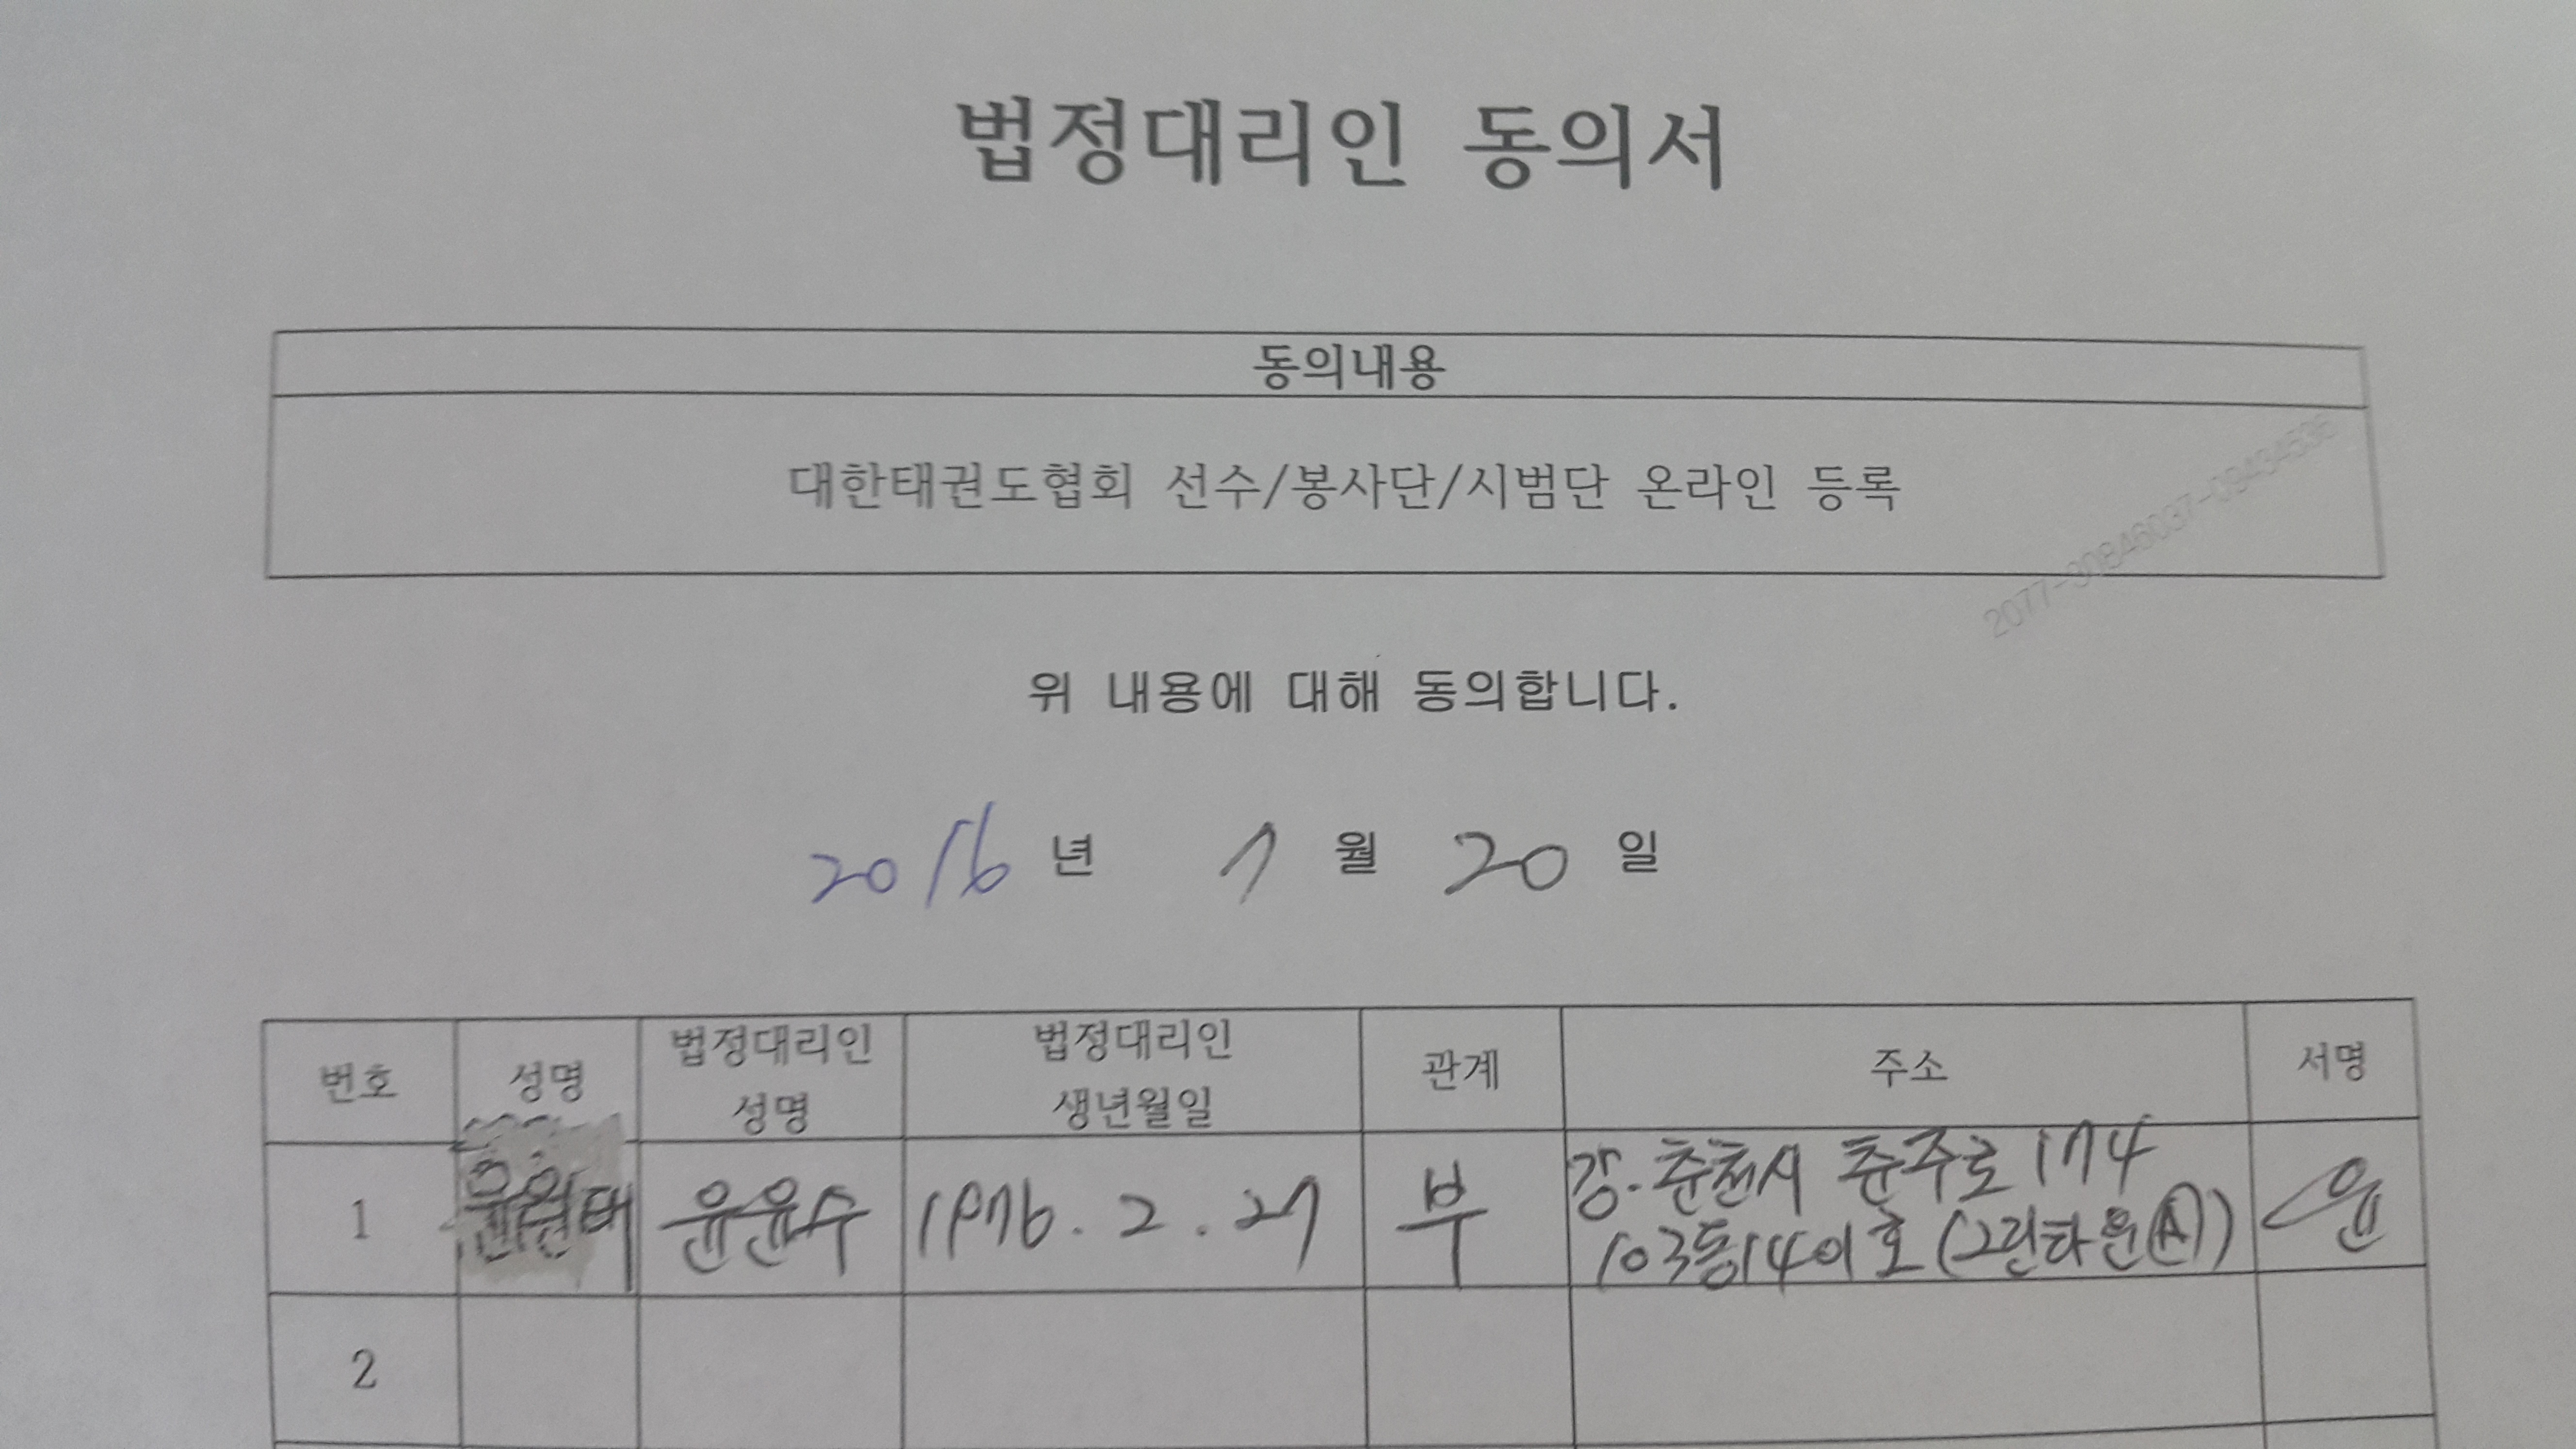 법정대리인 동의서
동의내용
대한태권도협회 선수/봉사단/시범단 온라인 등록
위 내용에 대해 동의합니다.
2016 년 7 월 20 일
번호 성명 법정대리인 성명 법정대리인 생년월일 관계 주소 서명
1 윤윤수 1976. 2. 27 부 강. 춘천시 춘주로 174
103동 1401호 (그린타운Ⓐ) 윤
2